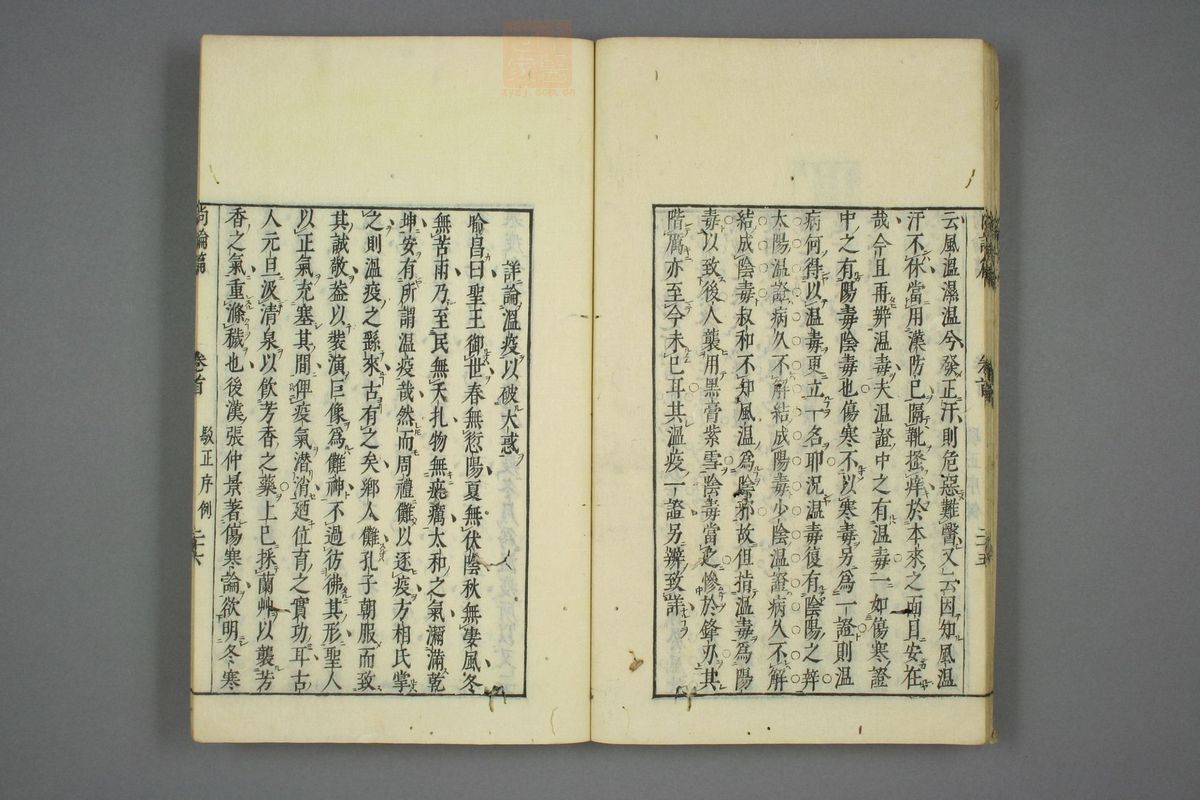 云風溫濕溫今發正汗則危惡難醫又云因知風溫
汗不休當用漢防已隔靴搔痒於本來之面目安在
哉今且再辨溫毒夫溫證中之有溫毒一如傷寒證
中之有陽毒陰毒也傷寒不以寒毒另爲一證則溫
病何得以溫毒更立一名耶況溫毒復有陰陽之辨
太陽溫證病久不解結成陽毒少陰溫證病久不解
結成陰毒叔和不知風溫爲陰邪故但指溫毒爲陽
毒以致後人襲用黑膏紫雪陰毒當之慘於鋒刃其
階厲亦至今未已耳其溫疫一證另辨致詳
卷首
二十五
詳論溫疫以破大惑
喻昌曰聖王御世春無愆陽夏無伏陰秋無凄風冬
無苦雨乃至民無夭扎物無疵癘太和之氣瀰滿乾
坤安有所謂溫疫哉然而周禮儺以逐疫方相氏掌
之則溫疫之繇來古有之矣鄉人儺孔子朝服而致
其誠敬葢以裝演巨像爲儺神不過彷彿其形聖人
以正氣充塞其間俾疫氣潛消廼位育之實功耳古
人元旦汲清泉以飲芳香之藥上巳採蘭艸以襲芳
香之氣重滌穢也後漢張仲景著傷寒論欲明冬寒
尚論篇
卷首
駁正序例
二十六
zyzj.com.cn